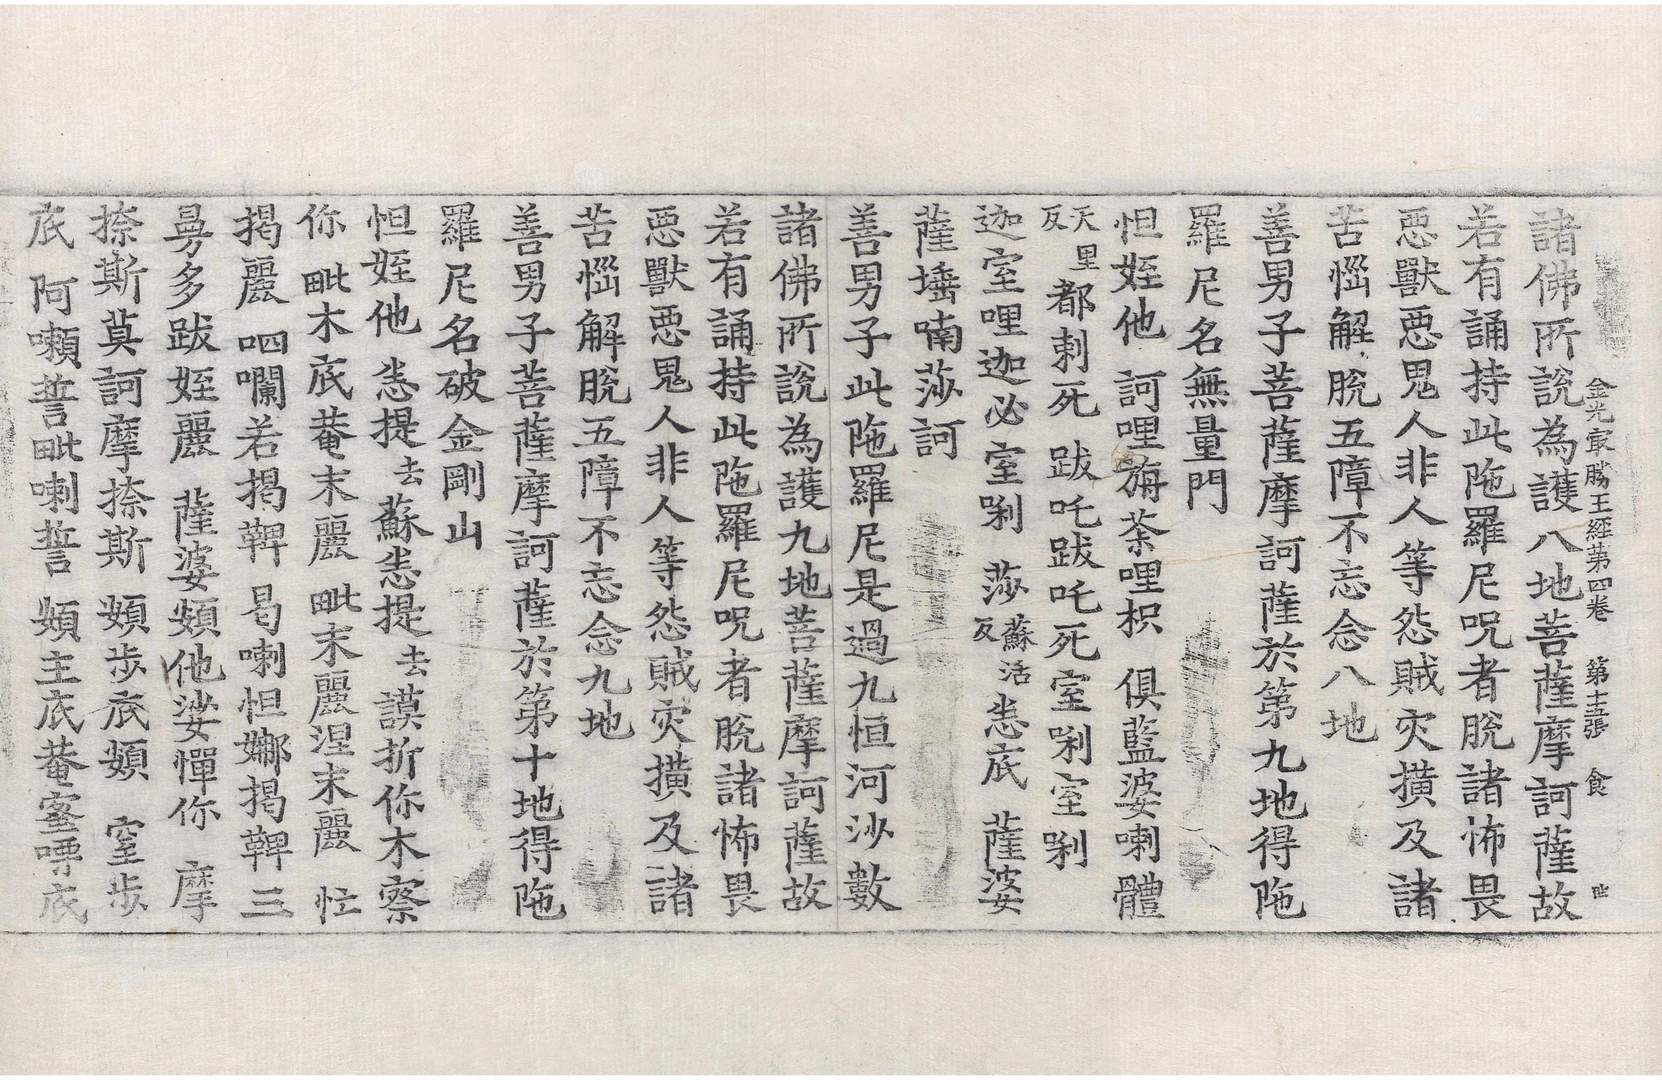 金光㝡勝王經苐四卷 第十五張 食
諸佛所說為護八地菩薩摩訶薩故
若有誦持此陁羅尼呪者脫諸怖畏
惡獸惡鬼人非人等怨賊灾撗及諸
苦惱解脫五障不忘念八地
善男子菩薩摩訶薩於第九地得陁
羅尼名無量門
怛姪他 訶哩旃荼哩枳 俱藍婆喇體
天里反都剌死 跋吒跋吒死室唎室唎
迦室哩迦必室唎 莎蘇活反恙底 薩婆
薩埵喃莎訶
善男子此陁羅尼是過九恒河沙數
諸佛所說為護九地菩薩摩訶薩故
若有誦持此陁羅尼呪者脫諸怖畏
惡獸惡鬼人非人等怨賊灾撗及諸
苦惱解脫五障不忘念九地
善男子菩薩摩訶薩於第十地得陁
羅尼名破金剛山
怛姪他 恙提去蘇恙提去謨折你木察
你 毗木底菴末麗 毗末麗涅末麗 忙
揭麗 呬嚂若揭鞞 曷喇怛娜揭鞞 三
曼多跋姪麗 薩婆頞他娑憚你 摩
捺斯莫訶摩捺斯 頞步底頞 窒步
底 阿嚬誓毗喇誓 頞主底菴蜜㗚底